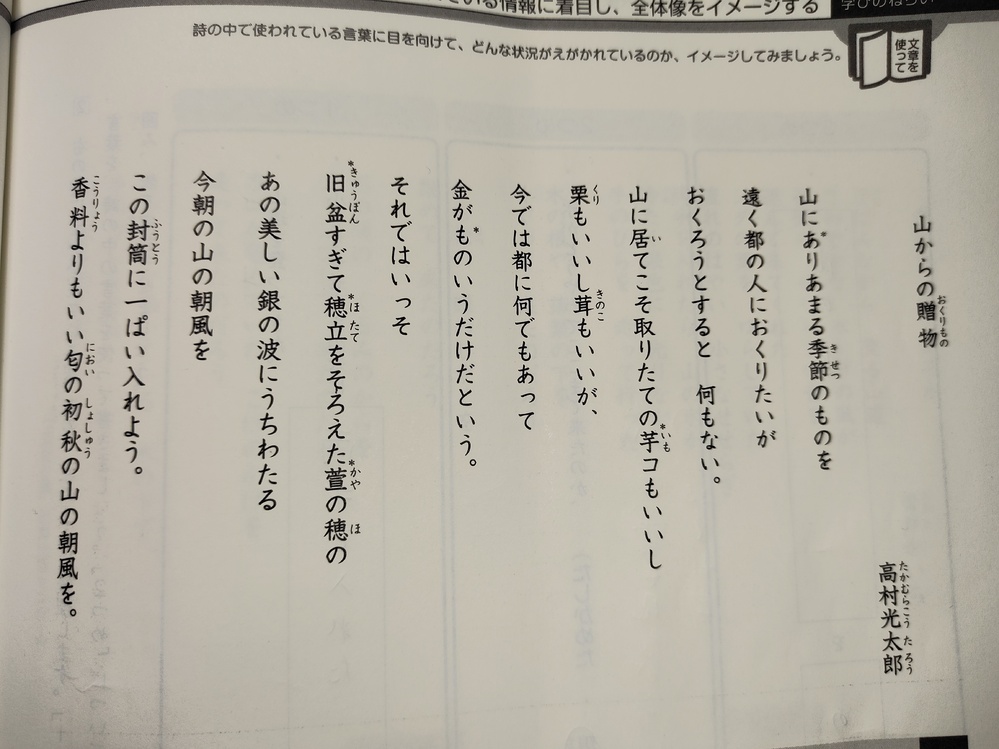 いる情報に着目し、全体像をイメージする
学びのねらい
文章を
使って
詩の中で使われている言葉に目を向けて、どんな状況がえがかれているのか、イメージしてみましょう。
山からの贈物
高村光太郎
山にありあまる季節のものを
遠く都の人におくりたいが
おくろうとすると 何もない。
山に居てこそ取りたての芋コもいいし
栗もいいし茸もいいが、
今では都に何でもあって
金がものいうだけだという。
それではいっそ
旧盆すぎて穂立をそろえた萱の穂の
あの美しい銀の波にうちわたる
今朝の山の朝風を
この封筒に一ぱい入れよう。
香料よりもいい匂の初秋の山の朝風を。